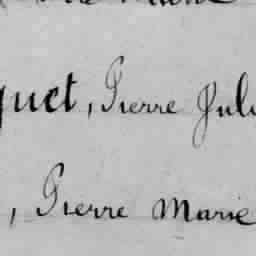 quet, Pierre Juli
, Pierre Marie